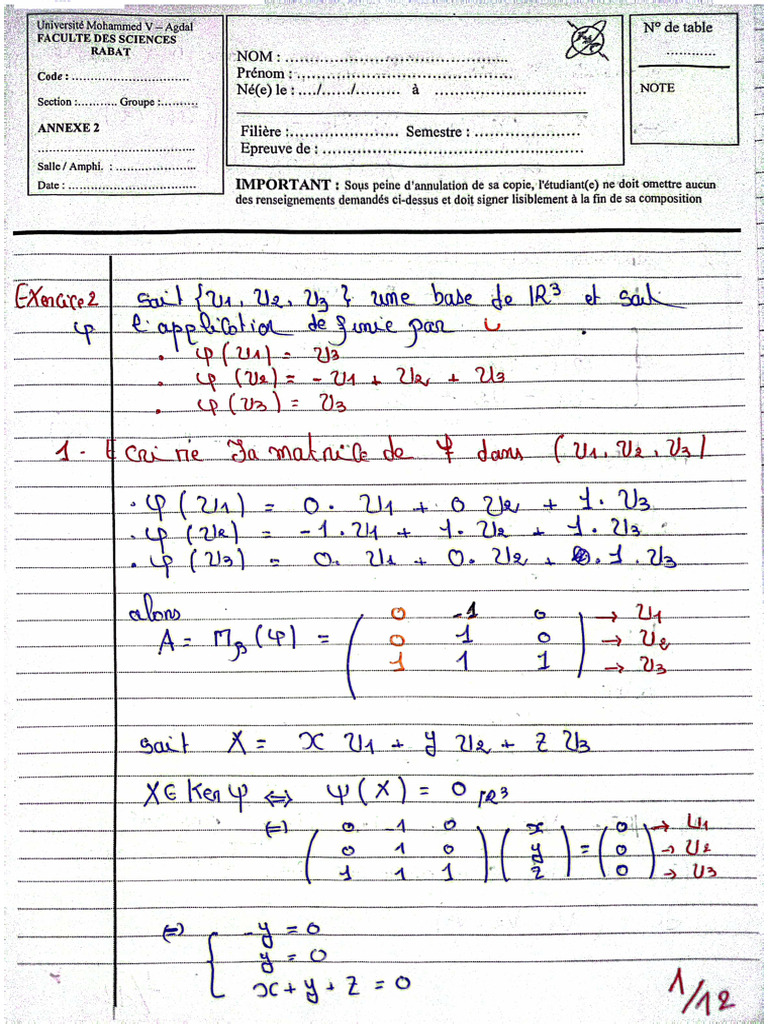 Université Mohammed V – Agdal
FACULTE DES SCIENCES
RABAT
Code : ................................
Section :.......... Groupe :.........
ANNEXE 2
Salle / Amphi. : ......................
Date : ...................................
NOM : ................................................
Prénom : .............................................
Né(e) le : ..../....../......... à .................................
Filière :........................ Semestre : .......................
Epreuve de : .......................................................
N° de table
............
NOTE
IMPORTANT : Sous peine d'annulation de sa copie, l'étudiant(e) ne doit omettre aucun
des renseignements demandés ci-dessus et doit signer lisiblement à la fin de sa composition
Exercice 2 soit {v1, v2, v3} une base de IR³ et soit
φ l'application definie par
• φ(v1) = v3
• φ(v2) = -v1 + v2 + v3
• φ(v3) = v3
1- Ecrire la matrice de φ dans (v1, v2, v3)
• φ(v1) = 0. v1 + 0 v2 + 1. v3
• φ(v2) = -1. v1 + 1. v2 + 1. v3
• φ(v3) = 0. v1 + 0. v2 + 1. v3
alors
A = Mβ(φ) = ( 0 -1 0 ) → v1
0 1 0 → v2
1 1 1 → v3
soit X = x v1 + y v2 + z v3
X ∈ Ker φ ⇔ φ(X) = 0 IR³
⇔ ( 0 -1 0 ) ( x ) = ( 0 ) → v1
0 1 0 y 0 → v2
1 1 1 z 0 → v3
⇔ { -y = 0
y = 0
x + y + z = 0
1/12